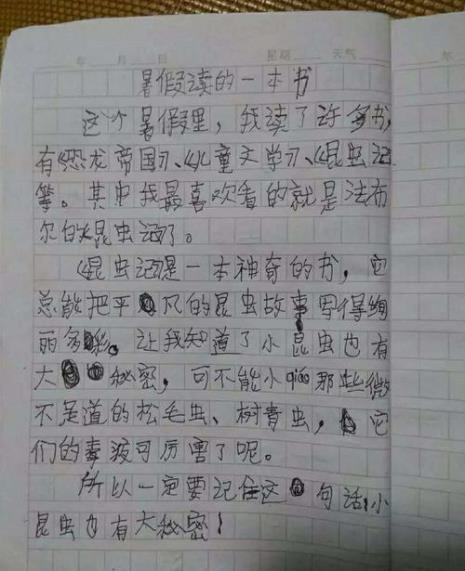 年 月 日 星期 天气
暑假读的一本书
这个暑假里，我读了许多书，
有《恐龙帝国》、《儿童文学》、《昆虫记
等。其中我最喜欢看的就是法布
尔的《昆虫记》了。
《昆虫记》是一本神奇的书，它
总能把平凡的昆虫故事写得绚
丽多彩。让我知道了小昆虫也有
大秘密，可不能小qiáo那些微
不足道的松毛虫、树青虫，它
们的毒液可厉害了呢。
所以一定要记住这句话：小
昆虫也有大秘密！